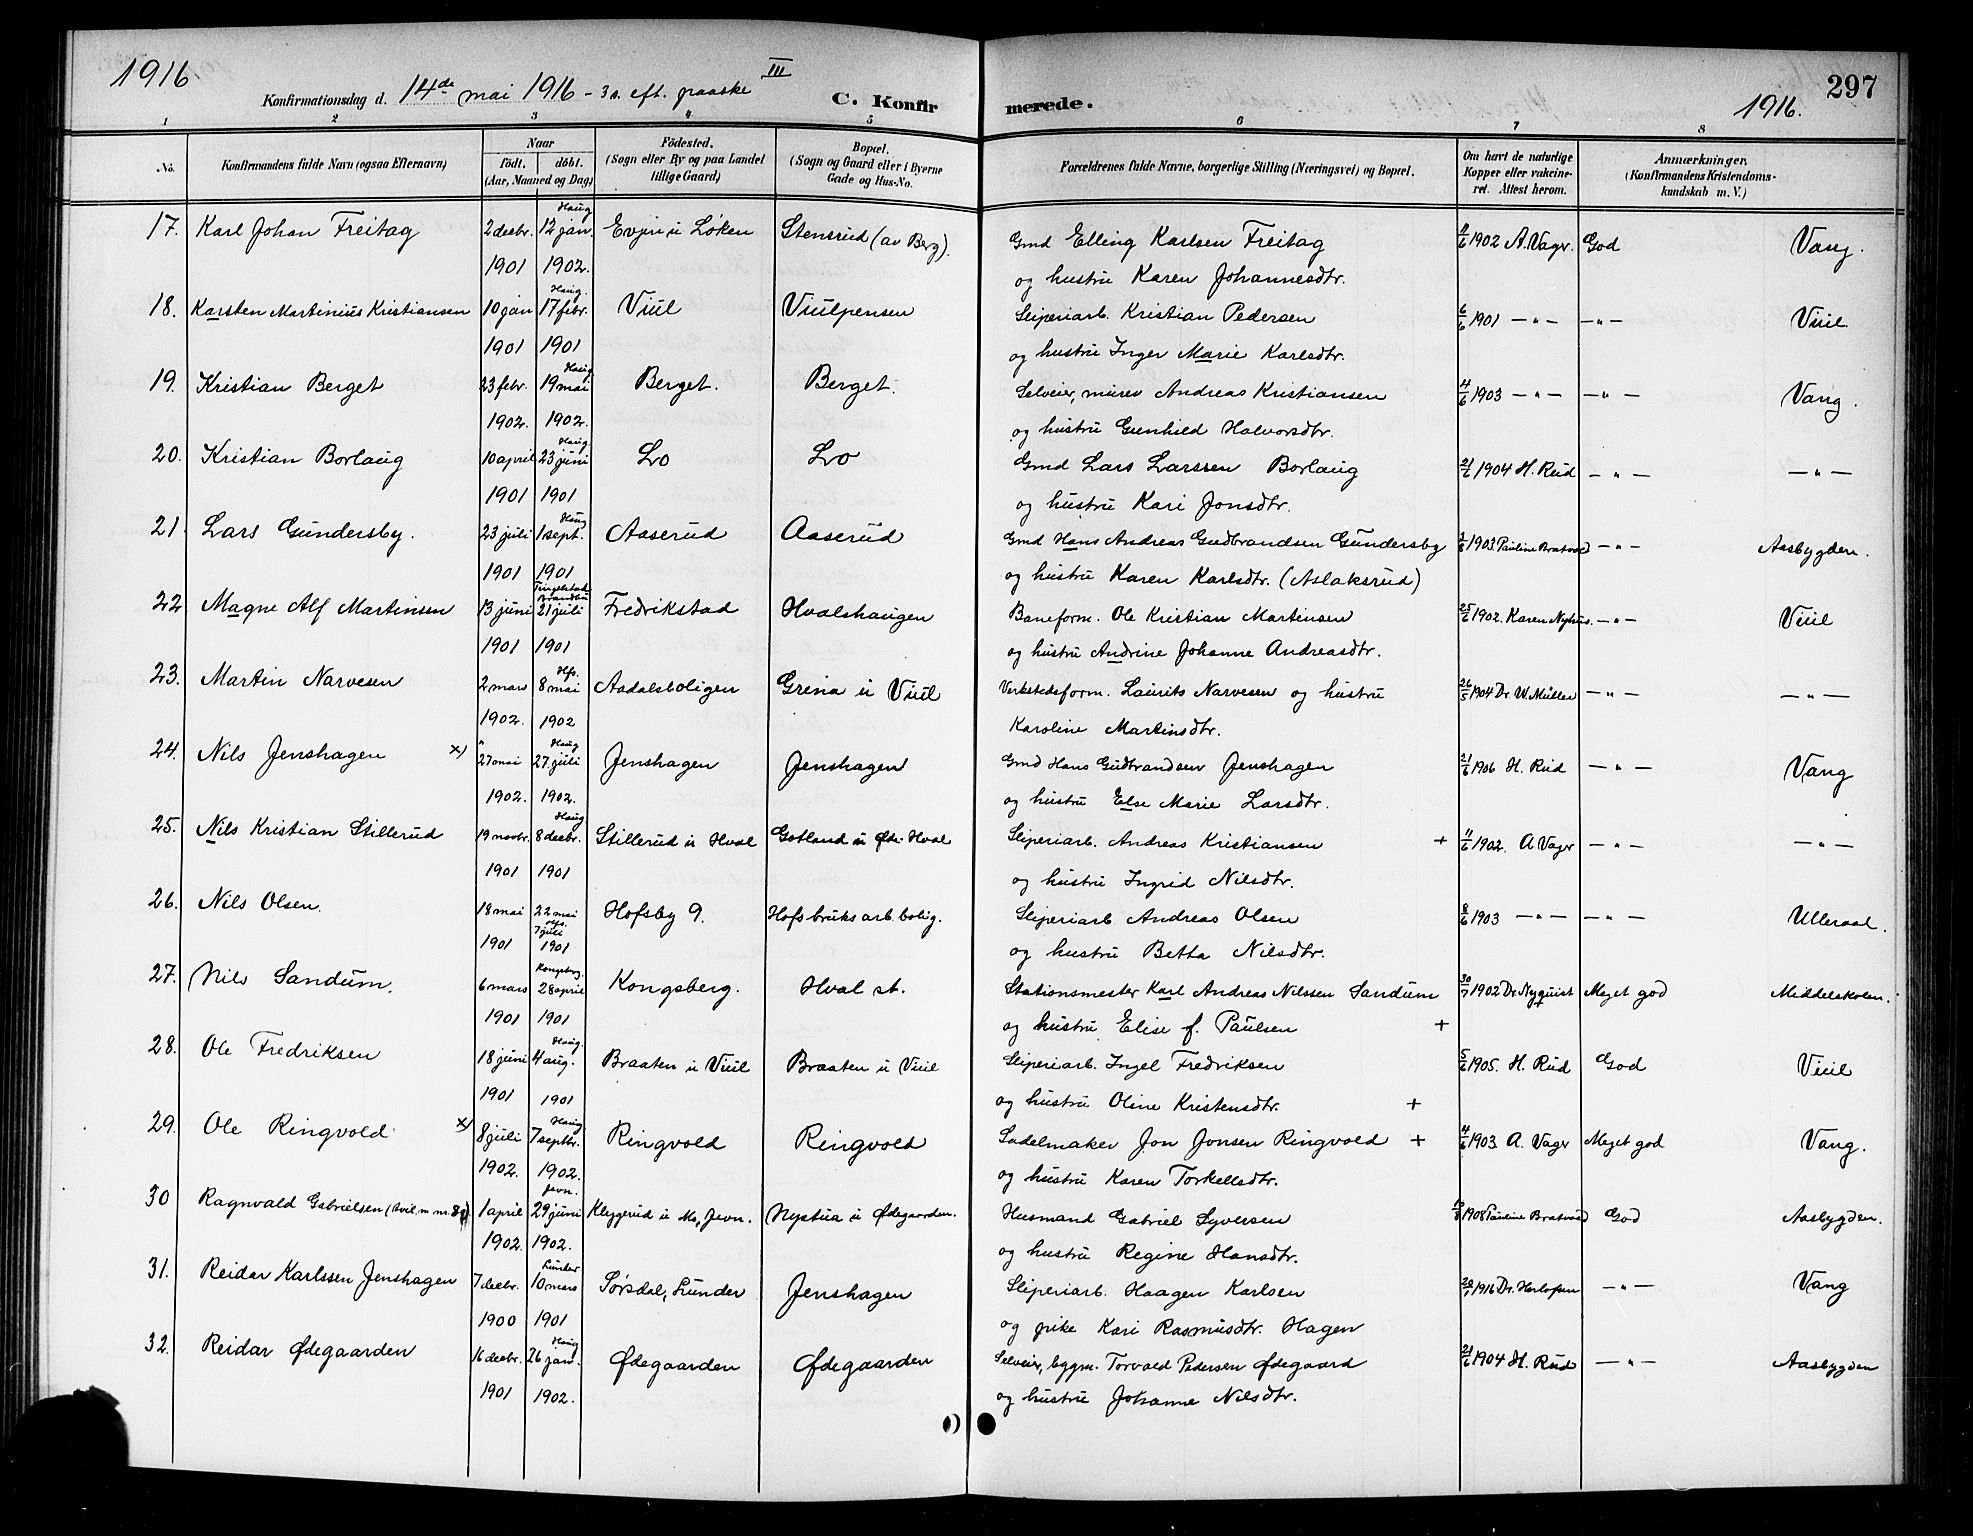 1916
Konfirmationsdag d. 14de mai 1916 - 3 s. eft. paaske III C. Konfirmerede. 1916. 297
1 2 3 4 5 6 7 8
No. Konfirmandens fulde Navn (ogsaa Efternavn) Naar født. døbt. (Aar, Maaned og Dag) Fødested. (Sogn eller By og paa Landet tillige Gaard) Bopæl. (Sogn og Gaard eller i Byerne Gade og Hus-No. Forældrenes fulde Navne, borgerlige Stilling (Næringsvei) og Bopæl. Om havt de naturlige Kopper eller vaccineret. Attest herom. Anmærkninger. (Konfirmandens Kristendomskundskab m. V.)
Haug
17. Karl Johan Freitag 2 decbr. 12 jan. Evjen u Løken Stensrud (av Berg). Gmd Elling Karlsen Freitag 11/6 1902 A. Vager. God Vang.
1901 1902. og hustru Karen Johannesdtr.
Haug.
18. Karsten Martinius Kristiansen 10 jan 17 febr. Viul Viulpensen Sliperiarb. Kristian Pedersen 6/6 1901 — " — — " — Viul
1901 1901 og hustru Inger Marie Karlsdtr.
Haug
19. Kristian Berget 23 febr. 19 mai Berget. Berget. Selveier, murer Andreas Kristiansen 4/6 1903 — " — — " — Vang.
1902. 1902. og hustru Gunhild Halvorsdtr.
Haug.
20. Kristian Borlaug 10 april 23 juni Lo Lo Gmd Lars Larssen Borlaug 21/6 1904 H. Rud — " — — " —
1901 1901 og hustru Kari Jonsdtr.
Haug
21. Lars Gundersby. 23 juli 1 sept. Aaserud Aaserud Gmd Hans Andreas Gudbrandsen Gundersby 1903. Pauline Bratvold — " — Aasbygden.
1901 1901 og hustru Karen Karlsdtr. (Aslaksrud)
Tingelstad Brandbu
22 Magne Alf Martinsen 13 juni 21 juli Fredrikstad Hvalshaugen Baneform. Ole Kristian Martensen 25/6 1902. Karen Nyhus. — " — Viul
1901 1901 og hustru Andrine Johanne Andreasdtr.
Hfs.
23. Martin Narvesen 2 mars 8 mai Aadalsboligen Grina u Viul Verkstedsform. Laurits Narvesen og hustru 26/5 1904 Dr. W. Müller — " — — " —
1902. 1902 Karoline Martinsdtr.
Haug
24. Nils Jenshagen x) 27 mai 27. juli Jenshagen Jenshagen Gmd Hans Gudbrandsen Jenshagen 21/6 1906 H. Rud — " — Vang
1902. 1902. og hustru Else Marie Larsdtr.
Haug
25. Nils Kristian Stillerud 19 novbr. 8 decbr. Stillerud u Hval Gotland u Øde Hval Sliperiarb. Andreas Kristiansen + 11/6 1902. A Vager — " — — " —
1901 1901 og hustru Ingrid Nilsdtr.
26. Nils Olsen. 18 mai 22 mai Hofsby 9. Hofsbruks arb. bolig. Sliperiarb Andreas Olsen 8/6 1903 — " — — " — Ulleraal.
Hfs. 7 juli
1901 1901 og hustru Betta Nilsdtr.
Kongsberg.
27. Nils Sandum. 6 mars 28 april Kongsberg. Hval st. Stationsmester Karl Andreas Nilssen Sandum 30/7 1902 Dr. Nyquist Meget god Middelskolen.
1901 1901 og hustru Elise f. Paulsen +
Haug.
28. Ole Fredriksen 18 juni 4 aug. Braaten u Viul Braaten u Viul Sliperiarb. Ingel Fredriksen 5/6 1905. H. Rud God Viul
1901 1901 og hustru Oline Kristensdtr. +
Haug
29. Ole Ringvold x) 8 juli 7 septbr. Ringvold Ringvold Sadelmaker Jon Jonsen Ringvold + 4/6 1903. A. Vager Meget god Vang.
1902. 1902. og hustru Karen Torkellsdtr.
Jevn.
30 Ragnvald Gabrielsen (tvil. m nr. 8) 1 april 29 juni Klyggerud u Ms, Jevn. Nystua u Ødegaarden. Husmand Gabriel Syversen 1908 Pauline Bratvold God Aasbygden.
1902. 1902. og hustru Regine Hansdtr.
Lunder
31. Reidar Karlssen Jenshagen 7 decbr. 10 mars Sørsdal, Lunder Jenshagen Sliperiarb. Haagen Karlsen 1916 Dr. Herlofsen — " — Vang
1900 1901 og pike Kari Rasmusdtr. Hagen
Haug
32. Reidar Ødegaarden 16 decbr. 26 jan. Ødegaarden Ødegaarden Selveier, bygm. Torvald Pedersen Ødegaard 21/6 1904 H. Rud — " — Aasbygden
1901 1902. og hustru Johanne Nilsdtr.